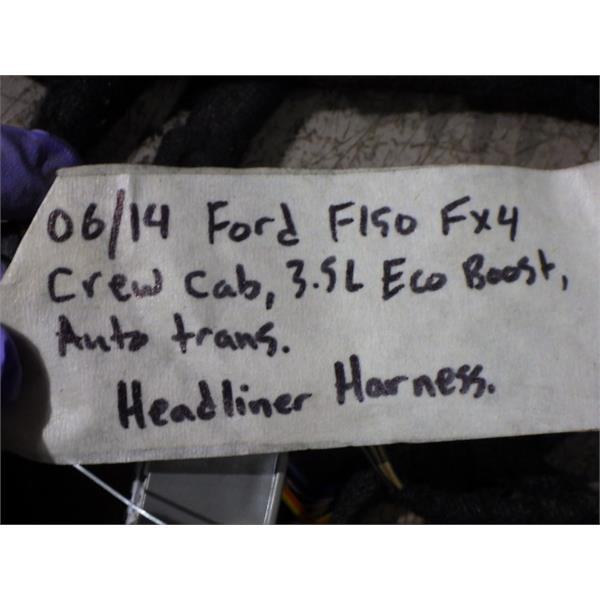 06/14 Ford F150 Fx4
Crew Cab, 3.5L Eco Boost,
Auto trans.
Headliner Harness.